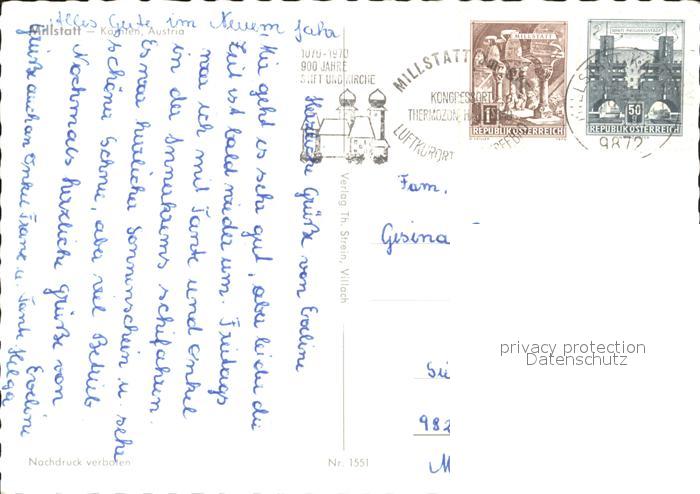 Alles Gute im Neuem Jahr
Millstatt — Kärnten, Austria
Herzliche Grüße von Eveline
Mir geht es sehr gut, aber leider die
Zeit ist bald wieder um. Freitags
war ich mit Tante und Onkel
in der Innerkrems schifahren.
Es war herrlicher Sonnenschein u. sehr
schöne Schnee, aber viel Betrieb
Nochmals herzliche Grüße von
Eveline
Grüße auch an Onkel Franz u. Tante Helga
1070-1970
900 JAHRE
STIFT UND KIRCHE
MILLSTATT
KONGRESSORT
LUFTKURORT
MILLSTATT
1 S
REPUBLIK ÖSTERREICH
50
REPUBLIK ÖSTERREICH
9872
Fam.
Gesina
982
M
privacy protection
Datenschutz
Verlag Th. Strein, Villach
Nachdruck verboten
Nr. 1551